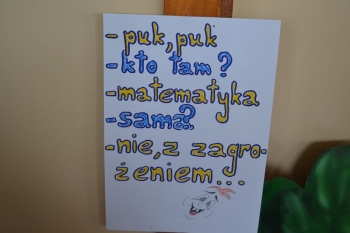 - puk, puk
- kto tam?
- matematyka
- sama?
- nie, z zagro-
żeniem...